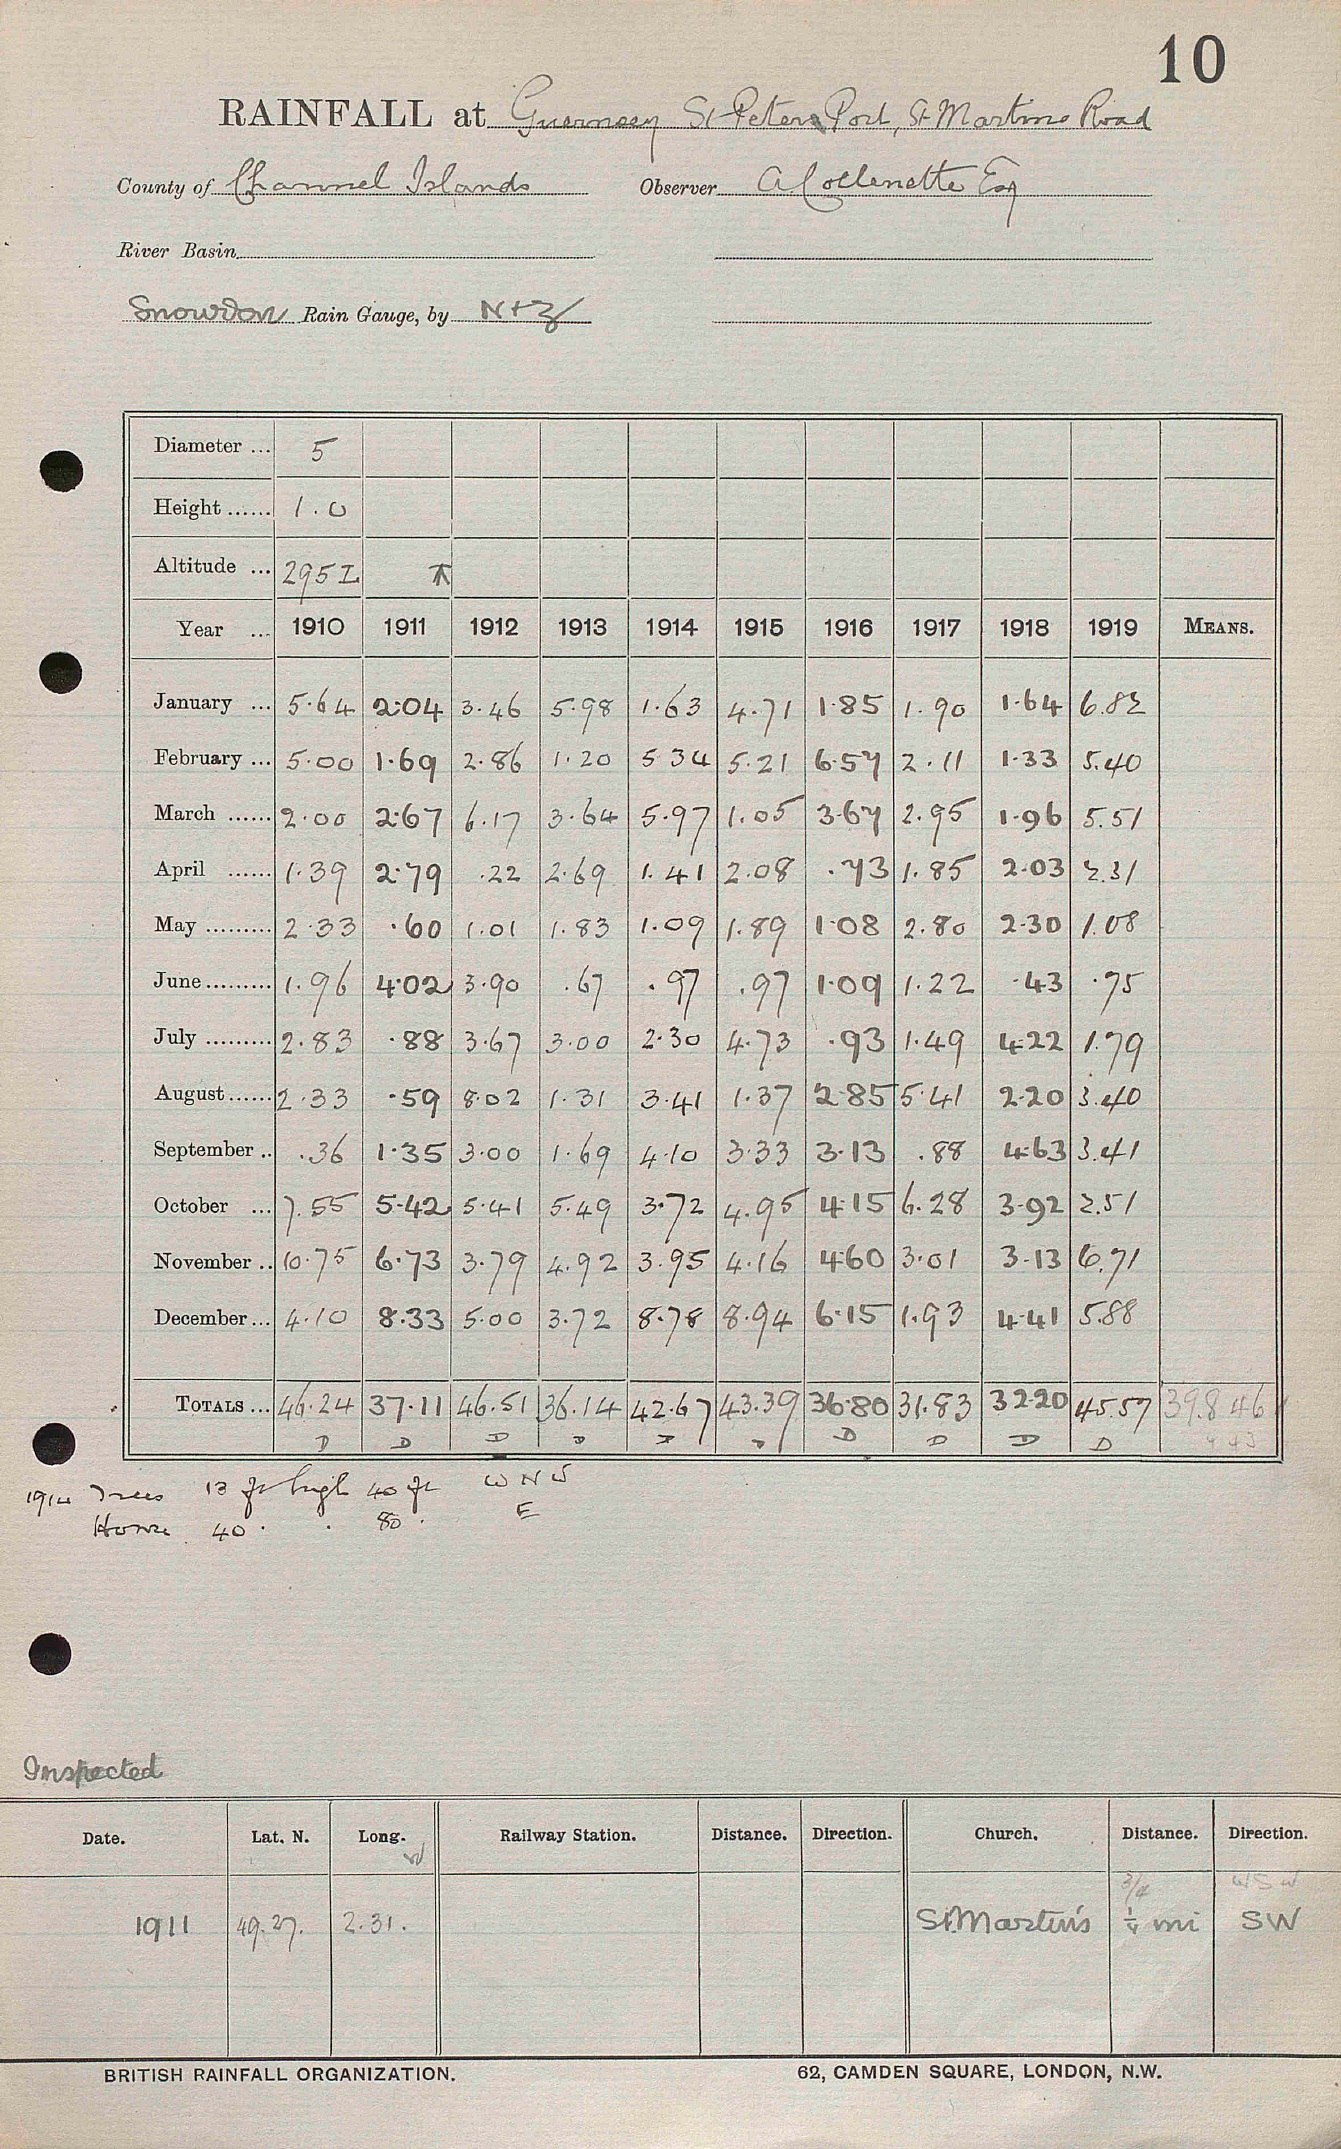 10
RAINFALL at Guernsey St Peters Port, St Martins Road
County of Channel Islands Observer A Collenette Esq
River Basin
Snowdon Rain Gauge, by N+Z
Diameter ... 5
Height ...... 1.0
Altitude ... 295 I
Year ... 1910 1911 1912 1913 1914 1915 1916 1917 1918 1919 MEANS.
January ... 5.64 2.04 3.46 5.98 1.63 4.71 1.85 1.90 1.64 6.82
February ... 5.00 1.69 2.86 1.20 5.34 5.21 6.57 2.11 1.33 5.40
March ...... 2.00 2.67 6.17 3.64 5.97 1.05 3.67 2.95 1.96 5.51
April ...... 1.39 2.79 .22 2.69 1.41 2.08 .73 1.85 2.03 2.31
May ......... 2.33 .60 1.01 1.83 1.09 1.89 1.08 2.80 2.30 1.08
June ......... 1.96 4.02 3.90 .67 .97 .97 1.09 1.22 .43 .75
July ......... 2.83 .88 3.67 3.00 2.30 4.73 .93 1.49 4.22 1.79
August ...... 2.33 .59 8.02 1.31 3.41 1.37 2.85 5.41 2.20 3.40
September .. .36 1.35 3.00 1.69 4.10 3.33 3.13 .88 4.63 3.41
October ... 7.55 5.42 5.41 5.49 3.72 4.95 4.15 6.28 3.92 2.51
November .. 10.75 6.73 3.79 4.92 3.95 4.16 4.60 3.01 3.13 6.71
December ... 4.10 8.33 5.00 3.72 8.78 8.94 6.15 1.93 4.41 5.88
TOTALS ... 46.24 37.11 46.51 36.14 42.67 43.39 36.80 31.83 32.20 45.57 39.846
D D D D D D D D D D
1914 Trees 13 ft high 40 ft WNW
House 40 . . 80 . E
Inspected
Date. Lat. N. Long. W Railway Station. Distance. Direction. Church. Distance. Direction.
3/4 WSW
1911 49.27. 2.31. St Martin's 1/4 mi SW
BRITISH RAINFALL ORGANIZATION. 62, CAMDEN SQUARE, LONDON, N.W.